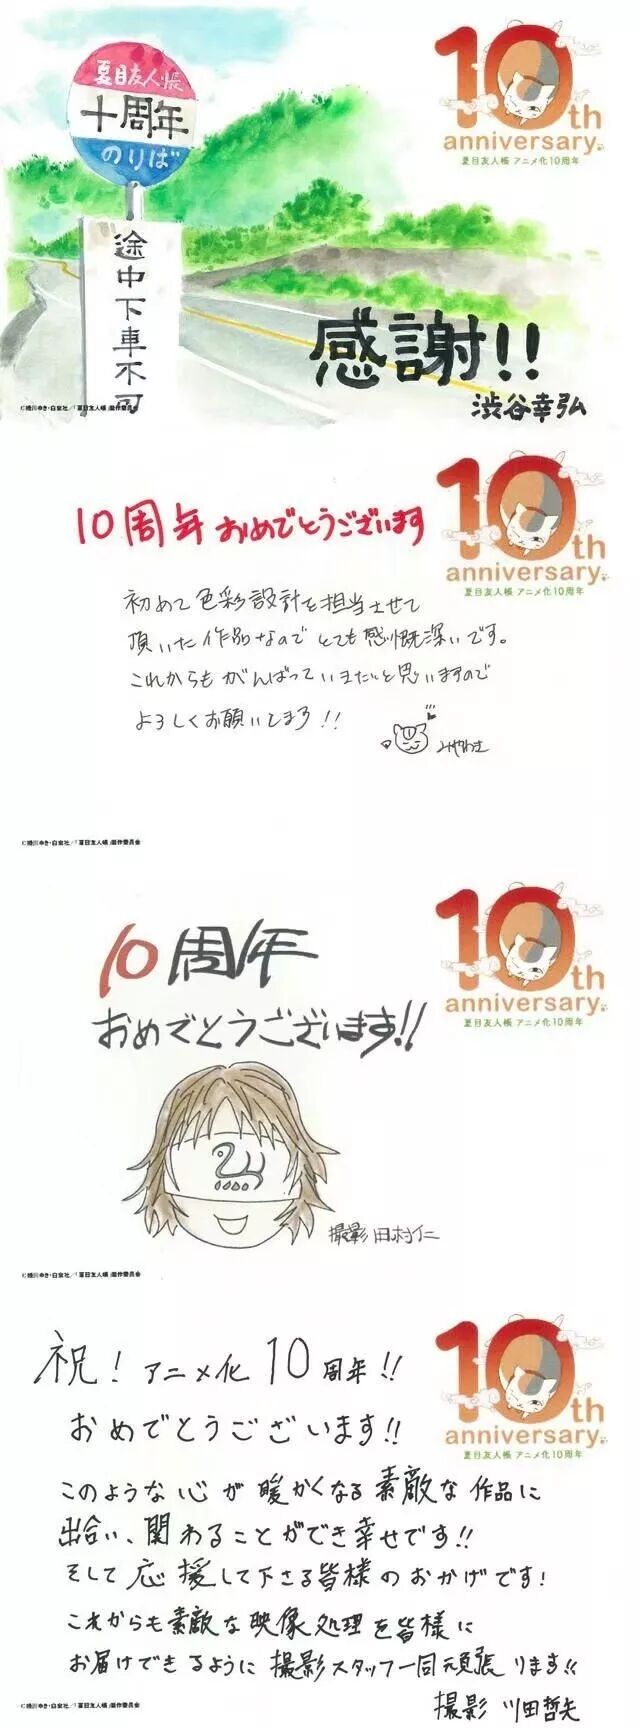 夏目友人帳
十周年
のりば
途中下車不可
10th
anniversary
夏目友人帳 アニメ化10周年
感謝!!
渋谷幸弘
©緑川ゆき・白泉社/「夏目友人帳」製作委員会
10周年おめでとうございます
10th
anniversary
夏目友人帳 アニメ化10周年
初めて色彩設計を担当させて
頂いた作品なので とても感慨深いです。
これからも がんばっていきたいと思いますので
よろしくお願いします!!
みやわき
©緑川ゆき・白泉社/「夏目友人帳」製作委員会
10周年
おめでとうございます!!
10th
anniversary
夏目友人帳 アニメ化10周年
撮影 田村仁
©緑川ゆき・白泉社/「夏目友人帳」製作委員会
祝! アニメ化 10周年!!
おめでとうございます!!
10th
anniversary
夏目友人帳 アニメ化10周年
このような心が暖かくなる素敵な作品に
出合い、関わることができ幸せです!!
そして応援して下さる皆様のおかげです!
これからも素敵な映像処理を皆様に
お届けできるように撮影スタッフ一同頑張ります!!
撮影 川田哲矢
©緑川ゆき・白泉社/「夏目友人帳」製作委員会